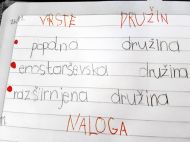 VRSTE DRUŽIN
popolna družina
enostarševska družina
razširnjena družina
NALOGA